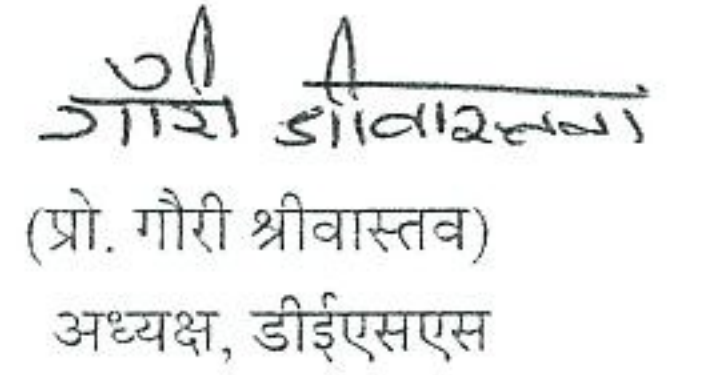 गौरी श्रीवास्तव
(प्रो. गौरी श्रीवास्तव)
अध्यक्ष, डीईएसएस